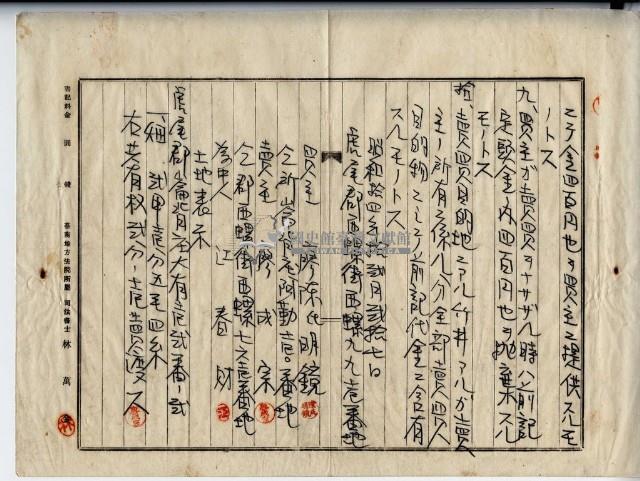 ニテ金四百円也ヲ買主ニ提供スルモ
ノトス
九、買主ガ賣買ヲナサザル時ハ前記
定頭金ノ内四百円也ヲ抛棄スル
モノトス
拾、賣買目的地ニアル竹井アルガ賣
主ノ所有ニ係ル分全部賣買
目的物ニシテ前記代金ニ含有
スルモノトス
昭和拾四年貳月貳拾七日
虎尾郡西螺街西螺九九壱番地
買主 廖陳氏明鏡
仝所崙背庄阿勸壱〇番地
賣主 廖成宗
仝郡西螺街西螺七六壱番地
為中人 江春財
土地表示
虎尾郡崙背庄大有壱貳番ノ貳
一、畑 貳甲壱分五毛四糸
右共有權貳分ノ壱賣渡ス
書記料金 圓 錢 臺南地方法院所屬 司法書士 林萬
國史館臺灣文獻館